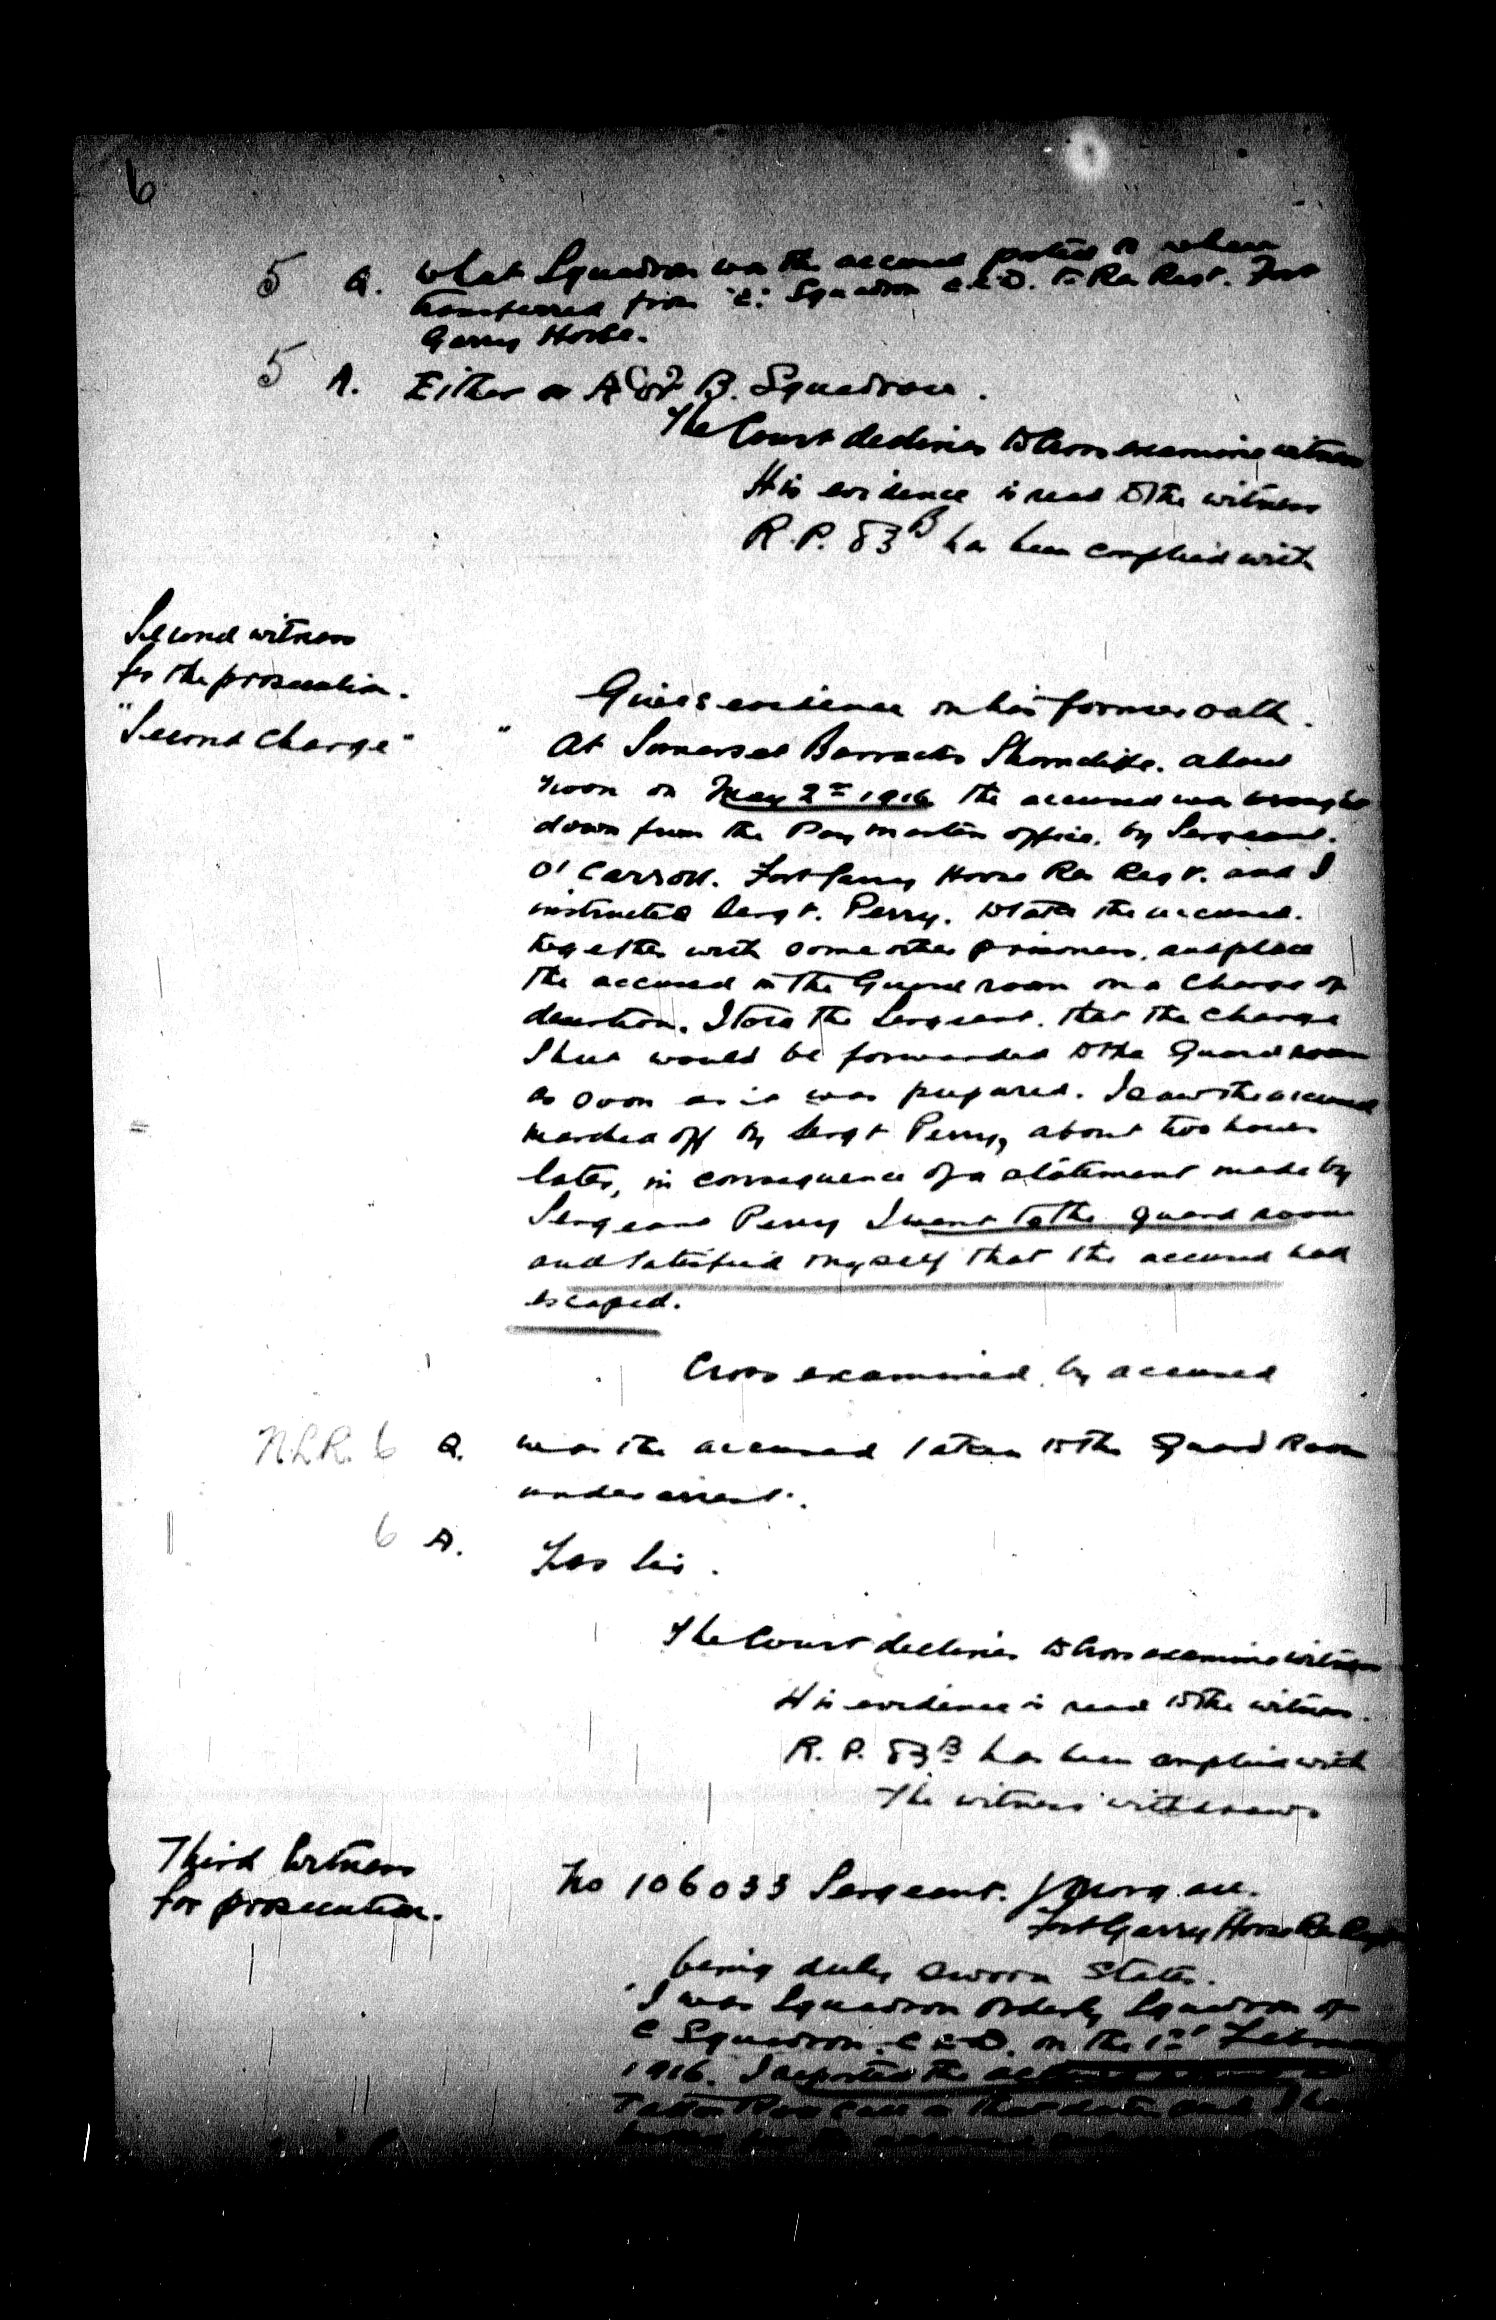 6
5 Q. What Squadron was the accused posted to when
transferred from "C." Squadron C.C.D. to Res Regt. Fort
Garry Horse.
5 A. Either A or B. Squadron.
The Court declines to Cross examine witness
His evidence is read to the witness
R.P. 83 B has been complied with
Second witness
for the prosecution.
"Second Charge"
Gives evidence on his former oath.
" At Somerset Barracks Shorncliffe. about
noon on May 2nd 1916 the accused was brought
down from the Pay Masters office, by Sergeant.
O'Carroll. Fort Garry Horse Res Regt. and I
instructed Sergt. Perry. to take the accused.
together with some other prisoners, and place
the accused in the Guard room on a Charge of
desertion. I told the Sergeant. that the Charge
Sheet would be forwarded to the Guard room
as soon as it was prepared. I saw the accused
marched off by Sergt Perry, about two hours
later, in consequence of a statement made by
Sergeant Perry I went to the guard room
and satisfied myself that the accused had
escaped.
Cross examined by accused
N.L.R. 6 Q. Was the accused taken to the Guard Room
under arrest.
6 A. Yes Sir.
The Court declines to Cross examine witness
His evidence is read to the witness.
R.P. 83 B has been complied with
The witness withdraws
Third Witness
for prosecution.
No 106033 Sergeant. Morgan.
Fort Garry Horse Res Regt
being duly sworn states.
"I was Squadron Orderly of
C Squadron. C.C.D. on the 1st
1916. I reported the
Tattoo Roll Call on that date and I